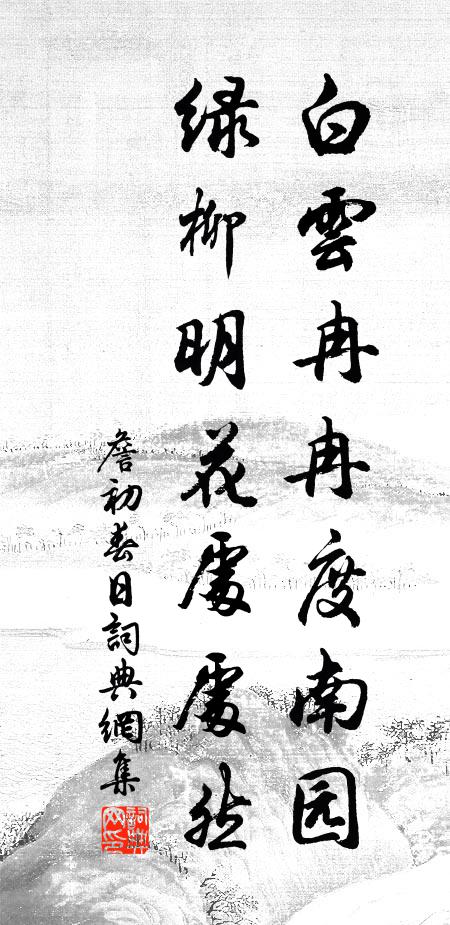 白雲冉冉度南园
緑柳明花處處然
詹初春日詞典網集